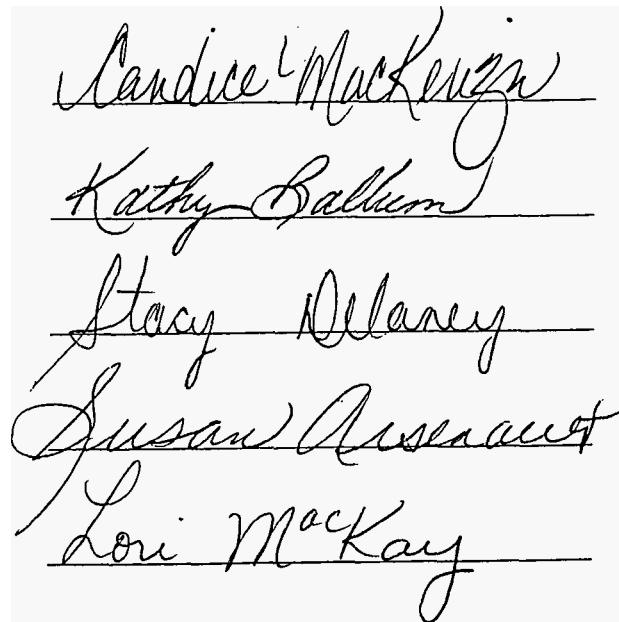 Candice MacKenzie
Kathy Ballum
Stacy Delaney
Susan Arsenault
Lori MacKay